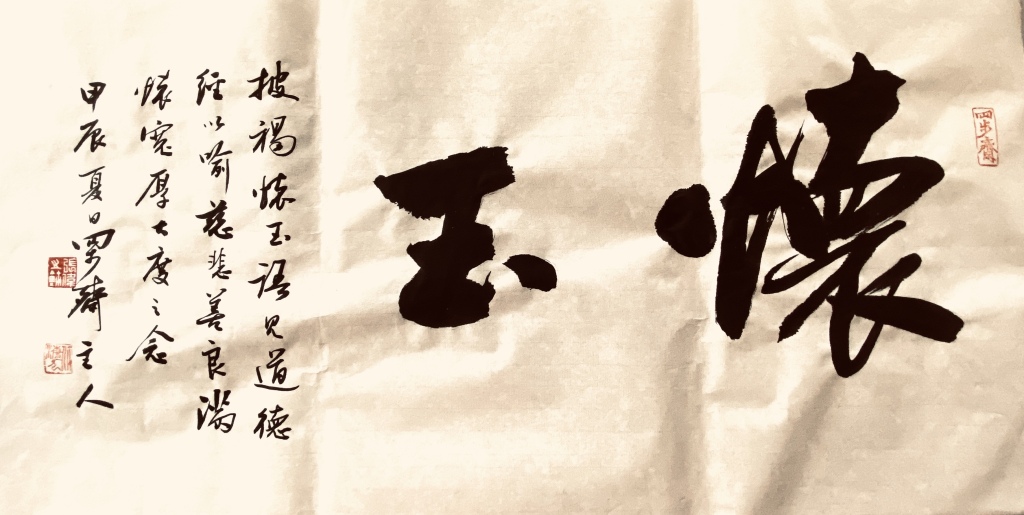 懷玉
四步齋
披褐懷玉語見道德
經以喻慈悲善良滿
懷寬厚大度之念
甲辰夏日四步齋主人